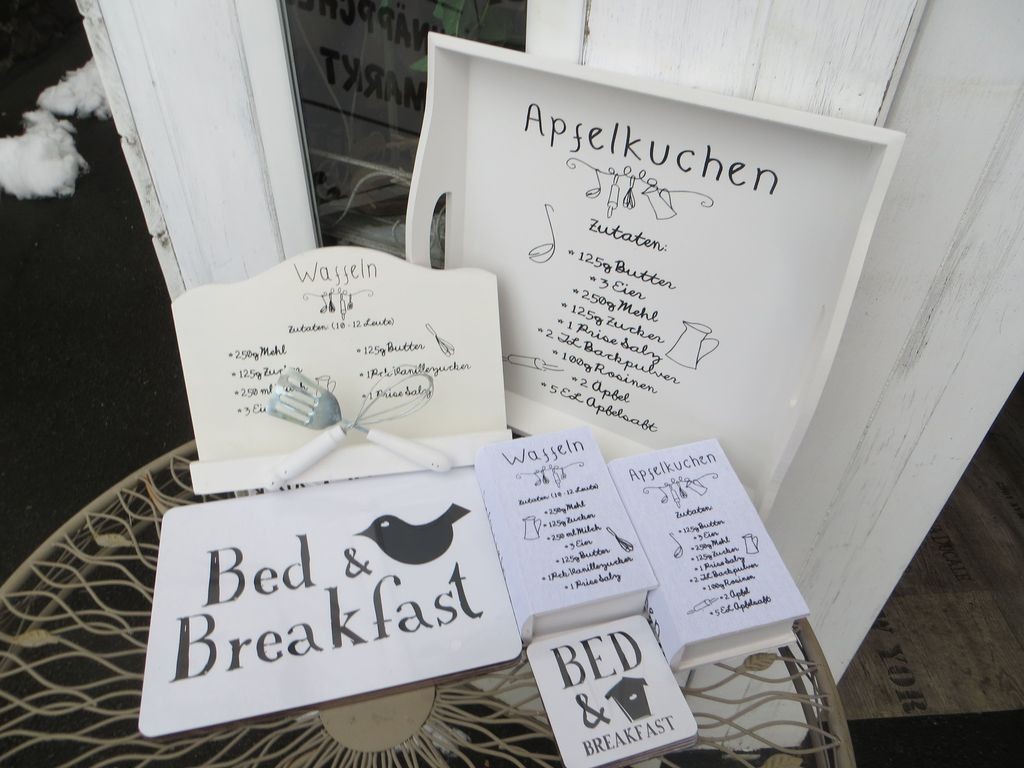 NÄPPCHE
MARKT
Apfelkuchen
Zutaten:
*125g Butter
*3 Eier
*250g Mehl
*125g Zucker
*1 Prise Salz
*2 TL Backpulver
*100g Rosinen
*2 Apfel
*5 EL Apfelsaft
Waffeln
Zutaten (10-12 Leute)
*250g Mehl
*125g Zu
*250 ml
*3 Ei
*125g Butter
*1 Pck Vanillezucker
*1 Prise Salz
Waffeln
Zutaten (10-12 Leute)
*250g Mehl
*125g Zucker
*250 ml Milch
*3 Eier
*125g Butter
*1 Pck Vanillezucker
*1 Prise Salz
Apfelkuchen
Zutaten
*125g Butter
*3 Eier
*250g Mehl
*125g Zucker
*1 Prise Salz
*2 TL Backpulver
*100g Rosinen
*2 Apfel
*5 EL Apfelsaft
Bed &
Breakfast
BED
&
BREAKFAST
YOR